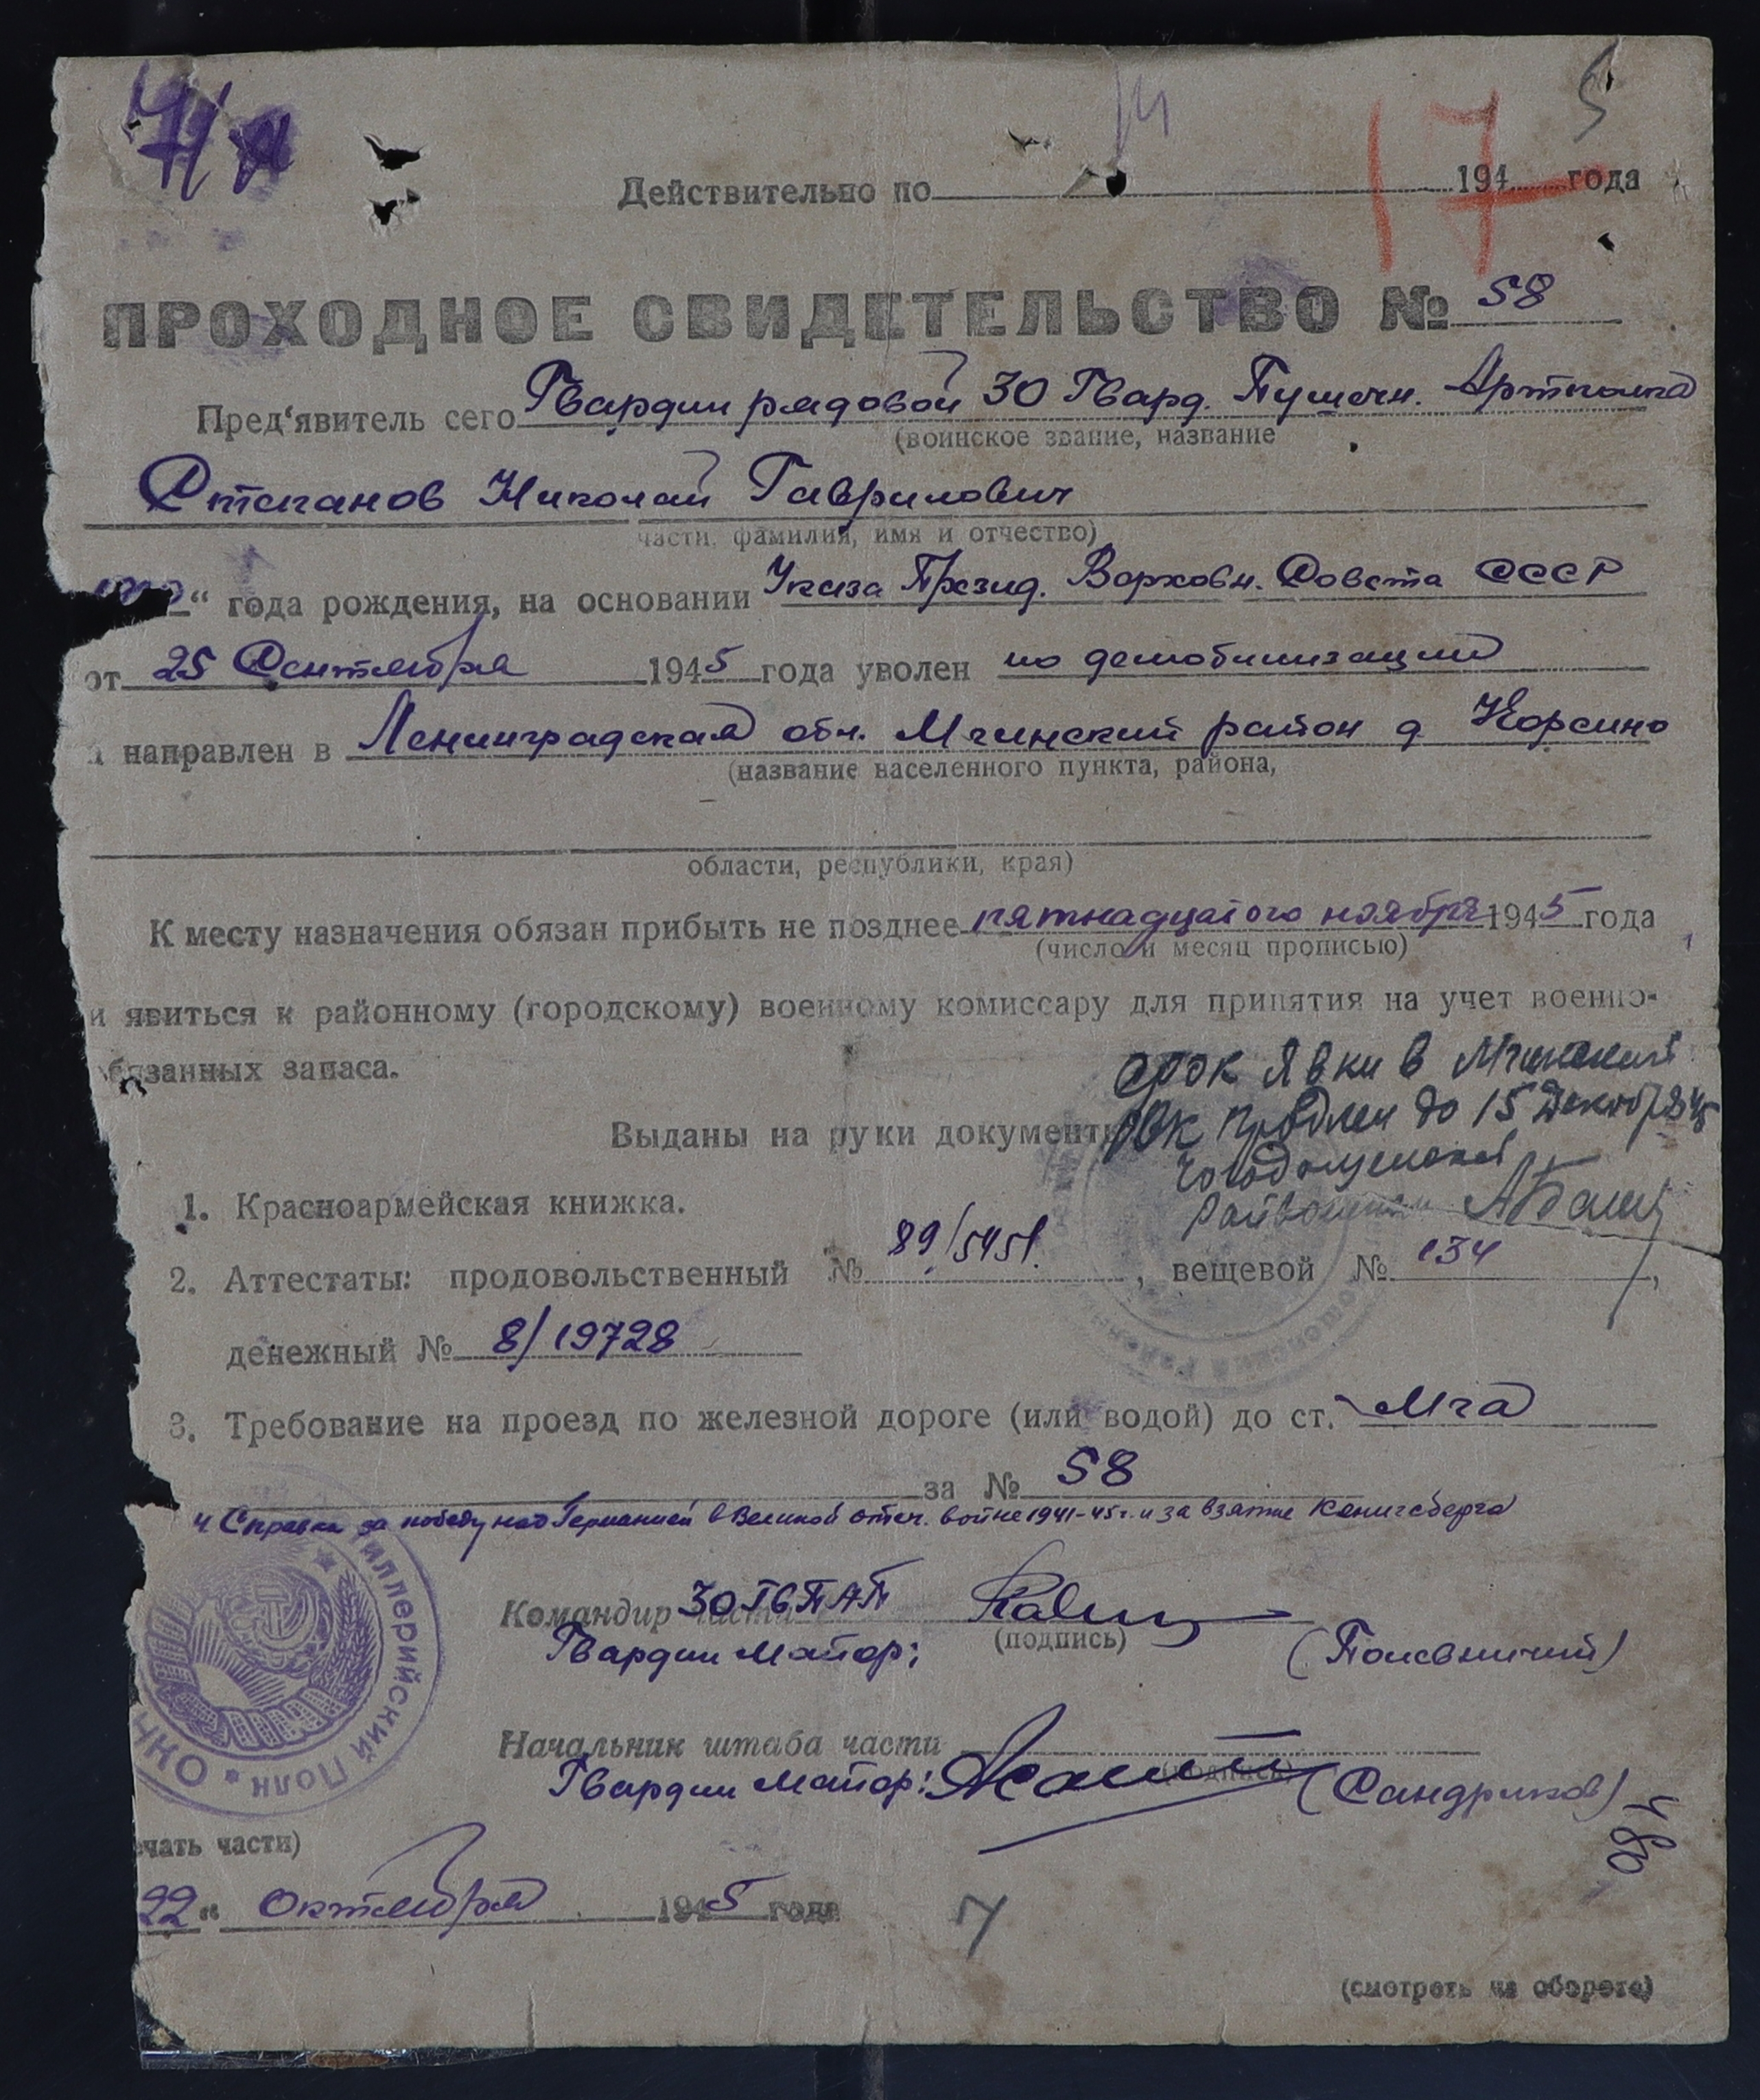 14
5
17
Действительно по 194 года
ПРОХОДНОЕ СВИДЕТЕЛЬСТВО № 58
Пред'явитель сего Гвардии рядовой 30 Гвард. Пушечн. Артполка
(воинское звание, название
Степанов Николай Гаврилович
части, фамилия, имя и отчество)
“ года рождения, на основании Указа Презид. Верховн. Совета СССР
от 25 Сентября 1945 года уволен по демобилизации
и направлен в Ленинградская обл. Мгинский район д. Корсино
(название населенного пункта, района,
области, республики, края)
К месту назначения обязан прибыть не позднее пятнадцатого ноября 1945 года
(число и месяц прописью)
и явиться к районному (городскому) военному комиссару для принятия на учет военно-
обязанных запаса.
Срок явки в Мгинский
РВК продлен до 15 декабря 45
Выданы на руки документы
Райвоенком
1. Красноармейская книжка.
2. Аттестаты: продовольственный № 89/5451, вещевой № 134,
денежный № 8/19728
3. Требование на проезд по железной дороге (или водой) до ст. Мга
за № 58
4 Справка за победу над Германией в Великой отеч. войне 1941-45 г. и за взятие Кенигсберга
Командир части 30 ГвПАП
(подпись)
Гвардии Майор:
Начальник штаба части
(подпись)
Гвардии Майор: (Сандриков)
ртиллерийский Полк * НКО
ечать части)
22 “ Октября 1945 года
7
(смотреть на обороте)